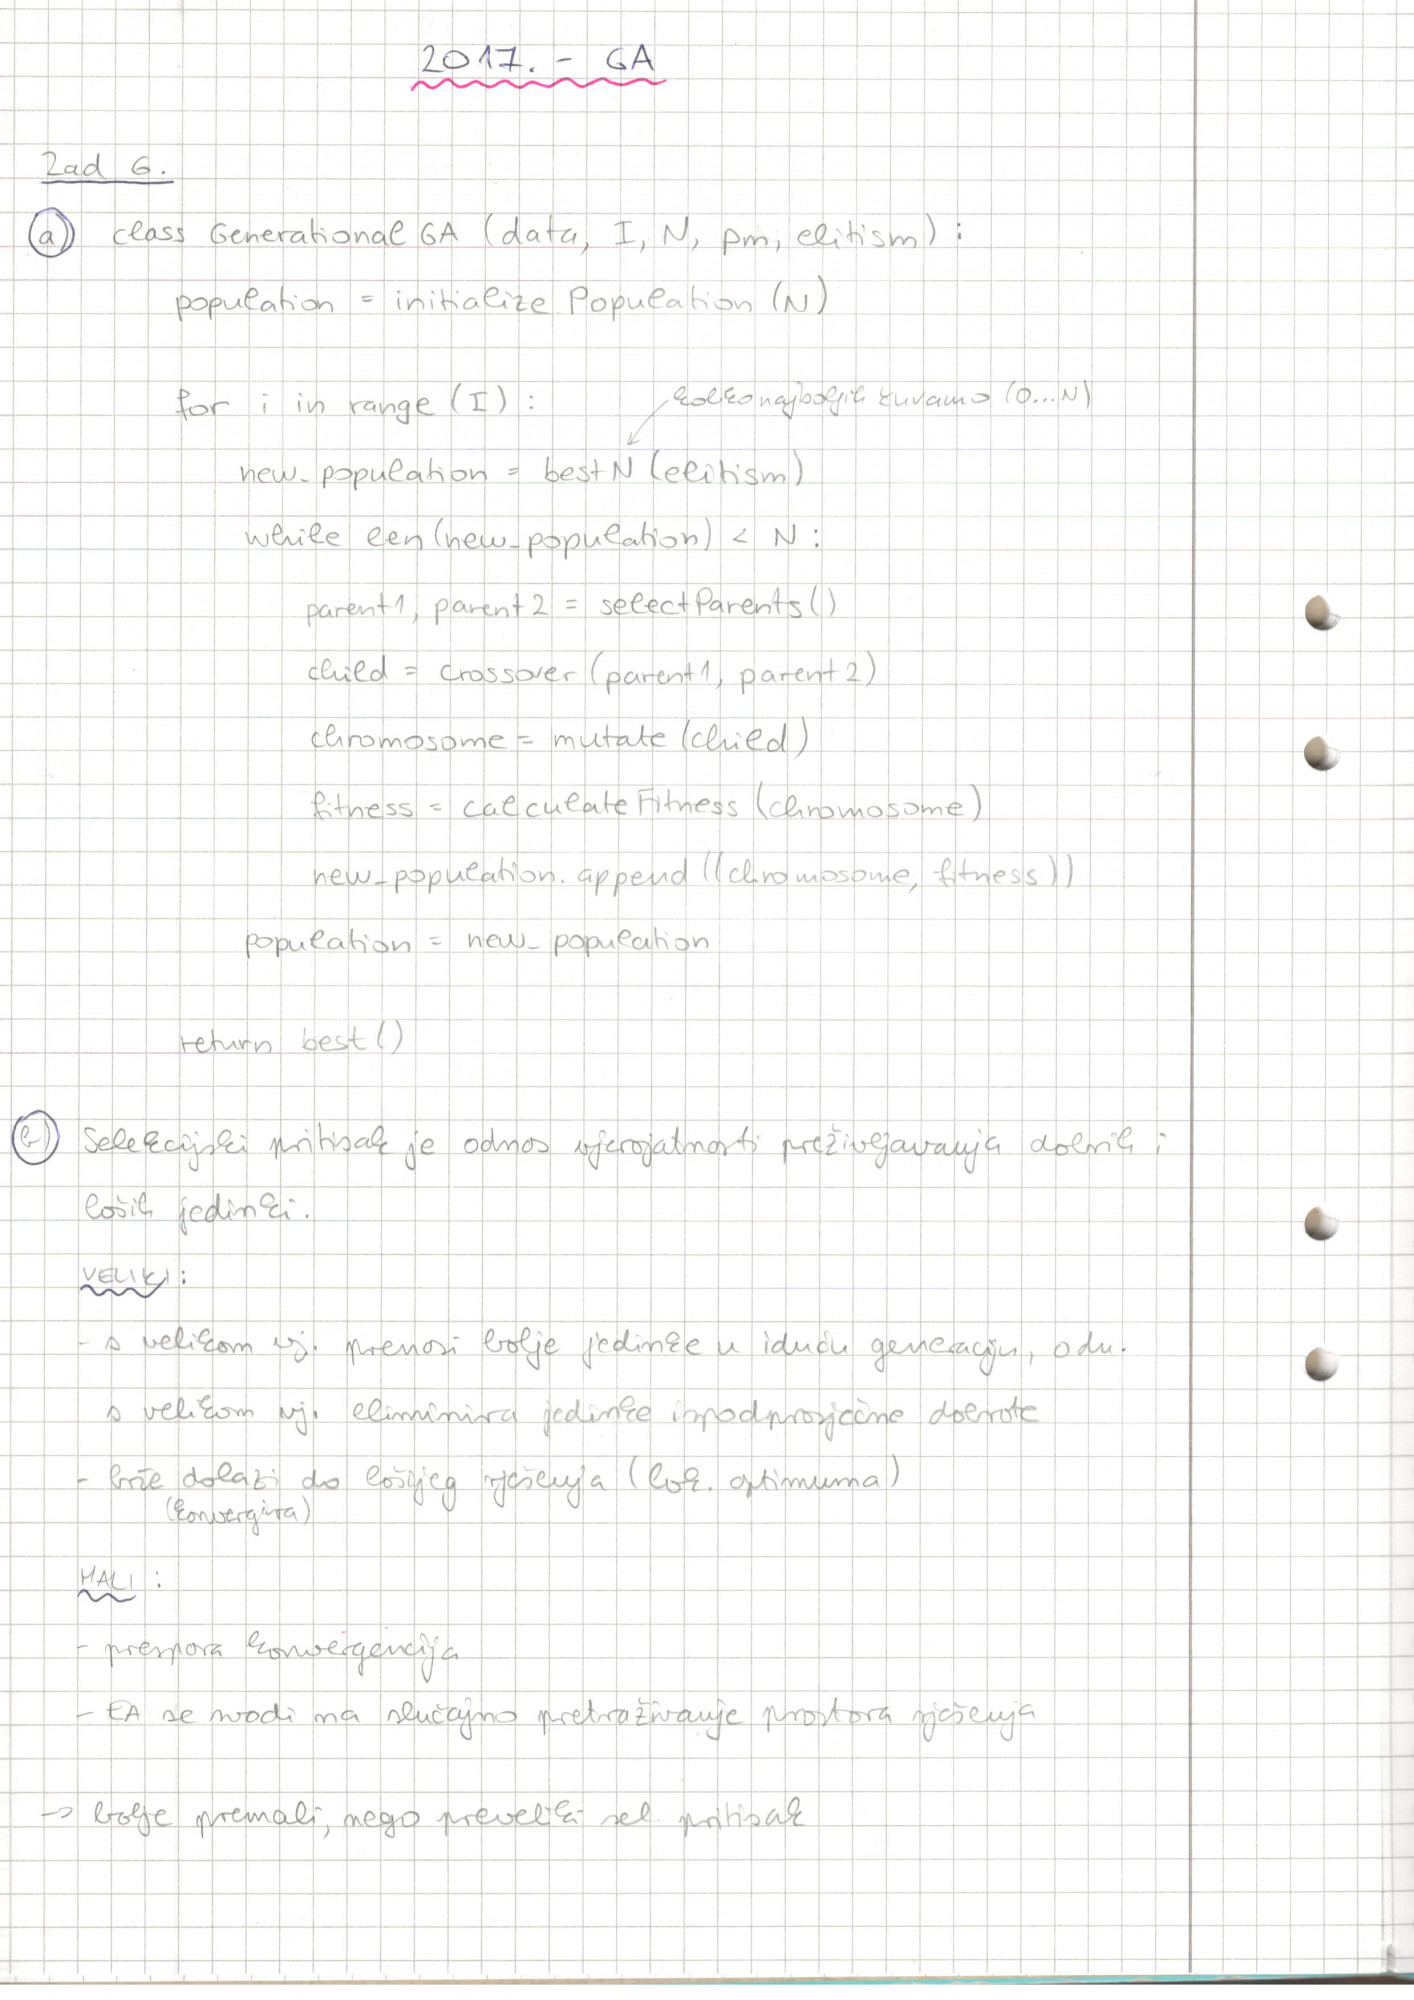 2017. - GA
Zad 6.
a) class Generational GA (data, I, N, pm, elitism):
population = initialize Population (N)
for i in range (I):
kolko najboljih čuvamo (0...N)
new_population = best N (elitism)
while len (new_population) < N:
parent1, parent2 = selectParents()
child = crossover (parent1, parent2)
chromosome = mutate (child)
fitness = calculateFitness (chromosome)
new_population.append ((chromosome, fitness))
population = new_population
return best ()
b) Selekcijski pritisak je odnos vjerojatnosti preživljavanja dobrih i
loših jedinki.
VELIKI:
- s velikom vj. prenosi bolje jedinke u iduću generaciju, odn.
s velikom vj. eliminira jedinke ispodprosječne dobrote
- brže dolazi do lošijeg rješenja (lok. optimuma)
(konvergira)
MALI:
- prespora konvergencija
- EA se svodi na slučajno pretraživanje prostora rješenja
-> bolje premali, nego preveliki sel. pritisak